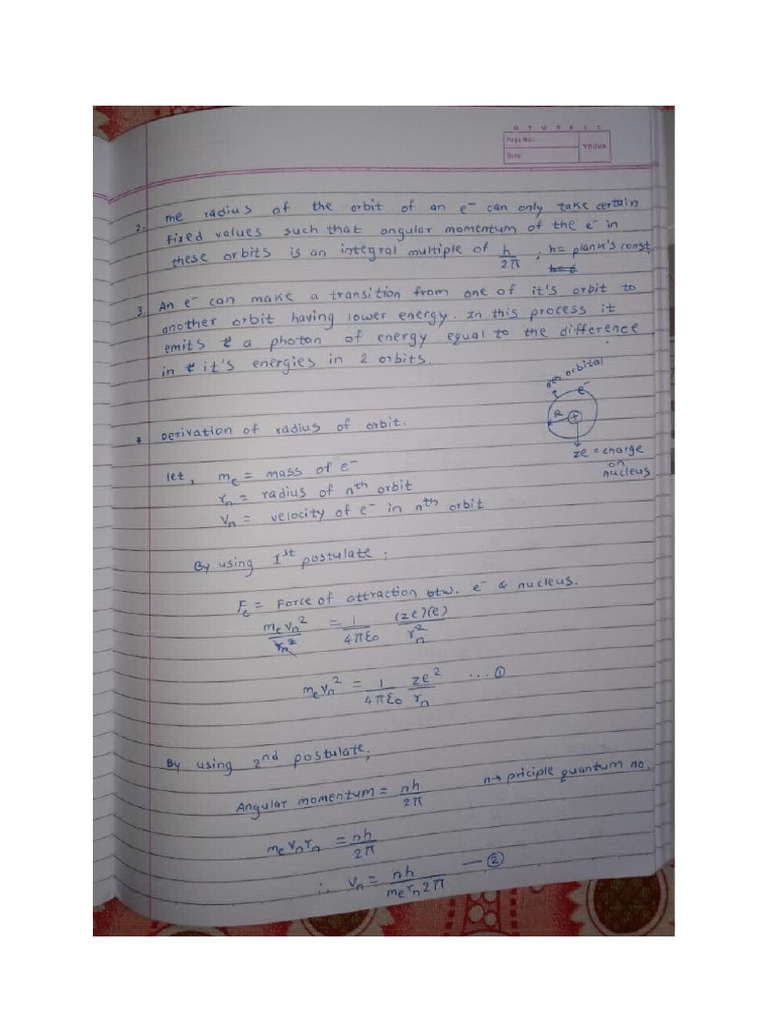 M T W T F S S
Page No.:
Date:
YOUVA
2. The radius of the orbit of an e⁻ can only take certain
fixed values such that angular momentum of the e⁻ in
these orbits is an integral multiple of h/2π ; h = plank's const
3. An e⁻ can make a transition from one of it's orbit to
another orbit having lower energy. In this process it
emits a photon of energy equal to the difference
in it's energies in 2 orbits.
nth orbital
e⁻
R
+
ze = charge
on
nucleus
* Derivation of radius of orbit.
let, mₑ = mass of e⁻
rₙ = radius of nth orbit
Vₙ = velocity of e⁻ in nth orbit
By using 1st postulate ;
Fc = Force of attraction btw. e⁻ & nucleus.
mₑvₙ²/rₙ = 1/4πε₀ (ze)(e)/rₙ²
mₑvₙ² = 1/4πε₀ ze²/rₙ ... ①
By using 2nd postulate;
Angular momentum = nh/2π n→ priciple quantum no.
mₑvₙrₙ = nh/2π
∴ Vₙ = nh/mₑrₙ2π — ②